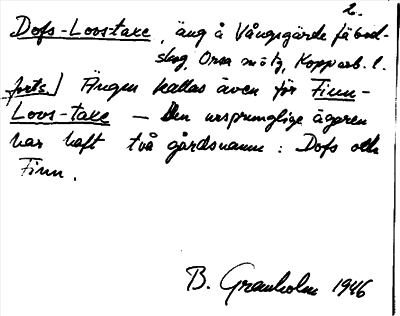 2.
Dofs-Loostaxe, äng å Vångsgärde fäbod-
skog, Orsa sn o tg, Kopparb. l.
forts.) Ängen kallas även för Finn-
Loos-taxe – Den ursprunglige ägaren
har haft två gårdsnamn: Dofs och
Finn.
B. Granholm 1946